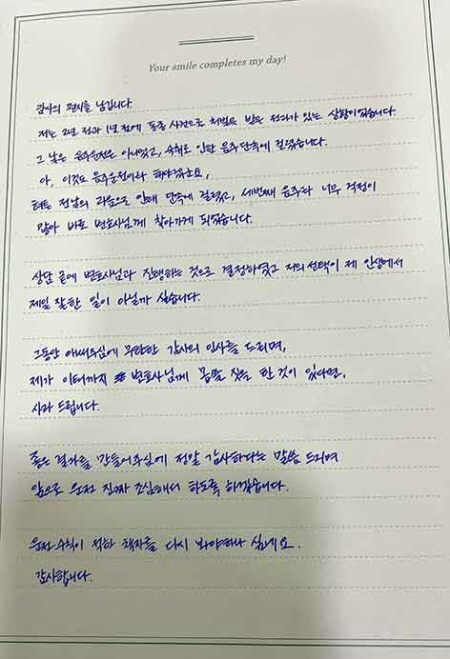 Your smile completes my day!
감사의 편지를 남깁니다.
저는 2년 전과 1년 전에 동종 사건으로 처벌을 받은 전과가 있는 상황이었습니다.
그 날은 음주운전은 아니었고, 숙취로 인한 음주단속에 걸렸습니다.
아, 이것도 음주운전이라 해야겠군요,
하여튼 전날의 과음으로 인해 단속에 걸렸고, 세번째 음주라 너무 걱정이
많아 바로 변호사님께 찾아가게 되었습니다.
상담 끝에 변호사님과 진행하는 것으로 결정하였고 저의 선택이 제 인생에서
제일 잘한 일이 아닐까 싶습니다.
그동안 애써주심에 무한한 감사의 인사를 드리며,
제가 이때까지 변호사님께 몹쓸 짓을 한 것이 있다면,
사과 드립니다.
좋은 결과를 만들어주심에 정말 감사하다는 말씀 드리며
앞으로 운전 진짜 조심해서 하도록 하겠습니다.
운전수칙이 적힌 책자를 다시 봐야하나 싶네요.
감사합니다.